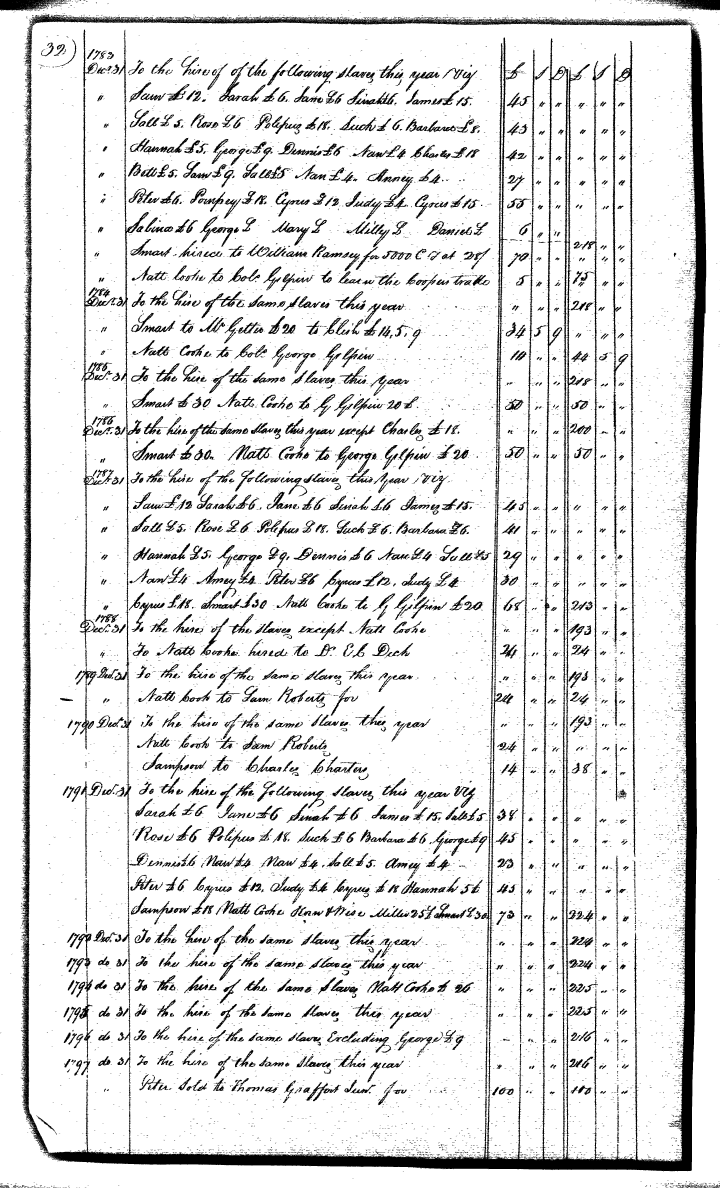 32
1783 Decr. 31 To the hire of of the following slaves this year Viz £ S D £ S D
" Sam £12. Sarah £6. Jane £6 Sinah £6. James £15. 45 " " " " "
" Sall £5. Rose £6 Polipus £18. Suck £6. Barbara £8. 43 " " " " "
" Hannah £5. George £9. Dennis £6 Nan £4 Charles £18 42 " " " " "
" Bett £5. Sam £9. Sall £5 Nan £4. Anney £4 27 " " " " "
" Peter £6. Pompey £18. Cyrus £12 Judy £4. Cyrus £15 55 " " " " "
" Sabina £6 George £ Mary £ Milly £ Daniel £ 6 " " 218 " "
" Smart hired to William Ramsey for 5000 C T at 28/ 70 " " " " "
" Natt Cooke to Colo. Gilpin to learn the Coopers trade 5 " " 75 " "
1784 Decr. 31 To the hire of the same slaves this year " " " 218 " "
" Smart to Mr Getter £20 to Clish £14,5,9 34 5 9 " " "
" Natt Cooke to Colo. George Gilpin 10 " " 44 5 9
1785 Decr. 31 To the hire of the same slaves this year " " " 218 " "
" Smart £30 Natt Cooke to G Gilpin 20£ 50 " " 50 " "
1786 Decr. 31 To the hire of the same slaves this year except Charles £18. " " " 200 " "
" Smart £30. Natt Cooke to George Gilpin £20 50 " " 50 " "
1787 Decr. 31 To the hire of the following slaves this year Viz
" Sam £12 Sarah £6. Jane £6 Sinah £6 James £15. 45 " " " " "
" Sall £5. Rose £6 Polipus £18. Suck £6. Barbara £6. 41 " " " " "
" Hannah £5. George £9. Dennis £6 Nan £4 Sall £5 29 " " " " "
" Nan £4 Amey £4 Peter £6 Cyrus £12. Judy £4 30 " " " " "
" Cyrus £18. Smart £30 Natt Cooke to G Gilpin £20 68 " " 213 " "
1788 Decr. 31 To the hire of the slaves except Natt Cooke " " " 193 " "
" To Natt Cooke hired to Dr. E C Dick 24 " " 24 " "
1789 Decr. 31 To the hire of the same slaves this year " " " 193 " "
" Natt Cook to Sam Roberts for 24 " " 24 " "
1790 Decr. 31 To the hire of the same slaves this year " " " 193 " "
Natt Cook to Sam Roberts 24 " " " " "
Sampson to Charles Charters 14 " " 38 " "
1791 Decr. 31 To the hire of the following slaves this year Viz
Sarah £6 Jane £6 Sinah £6 James £15. Sall £5 38 " " " " "
Rose £6 Polipus £18. Suck £6 Barbara £6. George £9 45 " " " " "
Dennis £6 Nan £4 Nan £4. Sall £5. Amey £4 23 " " " " "
Peter £6 Cyrus £12. Judy £4 Cyrus £18 Hannah 5£ 45 " " " " "
Sampson £18 Natt Cooke Wise Miller 25£ Smart £30 73 " " 224 " "
1792 Decr. 31 To the hire of the same slaves this year " " " 224 " "
1793 do 31 To the hire of the same slaves this year " " " 224 " "
1794 do 31 To the hire of the same Slaves Natt Cooke £26 " " " 225 " "
1795 do 31 To the hire of the same Slaves this year " " " 225 " "
1796 do 31 To the hire of the same slaves Excluding George £9 " " " 216 " "
1797 do 31 To the hire of the same slaves this year " " " 216 " "
" Peter Sold to Thomas Graffort Junr. for 100 " " 100 " "